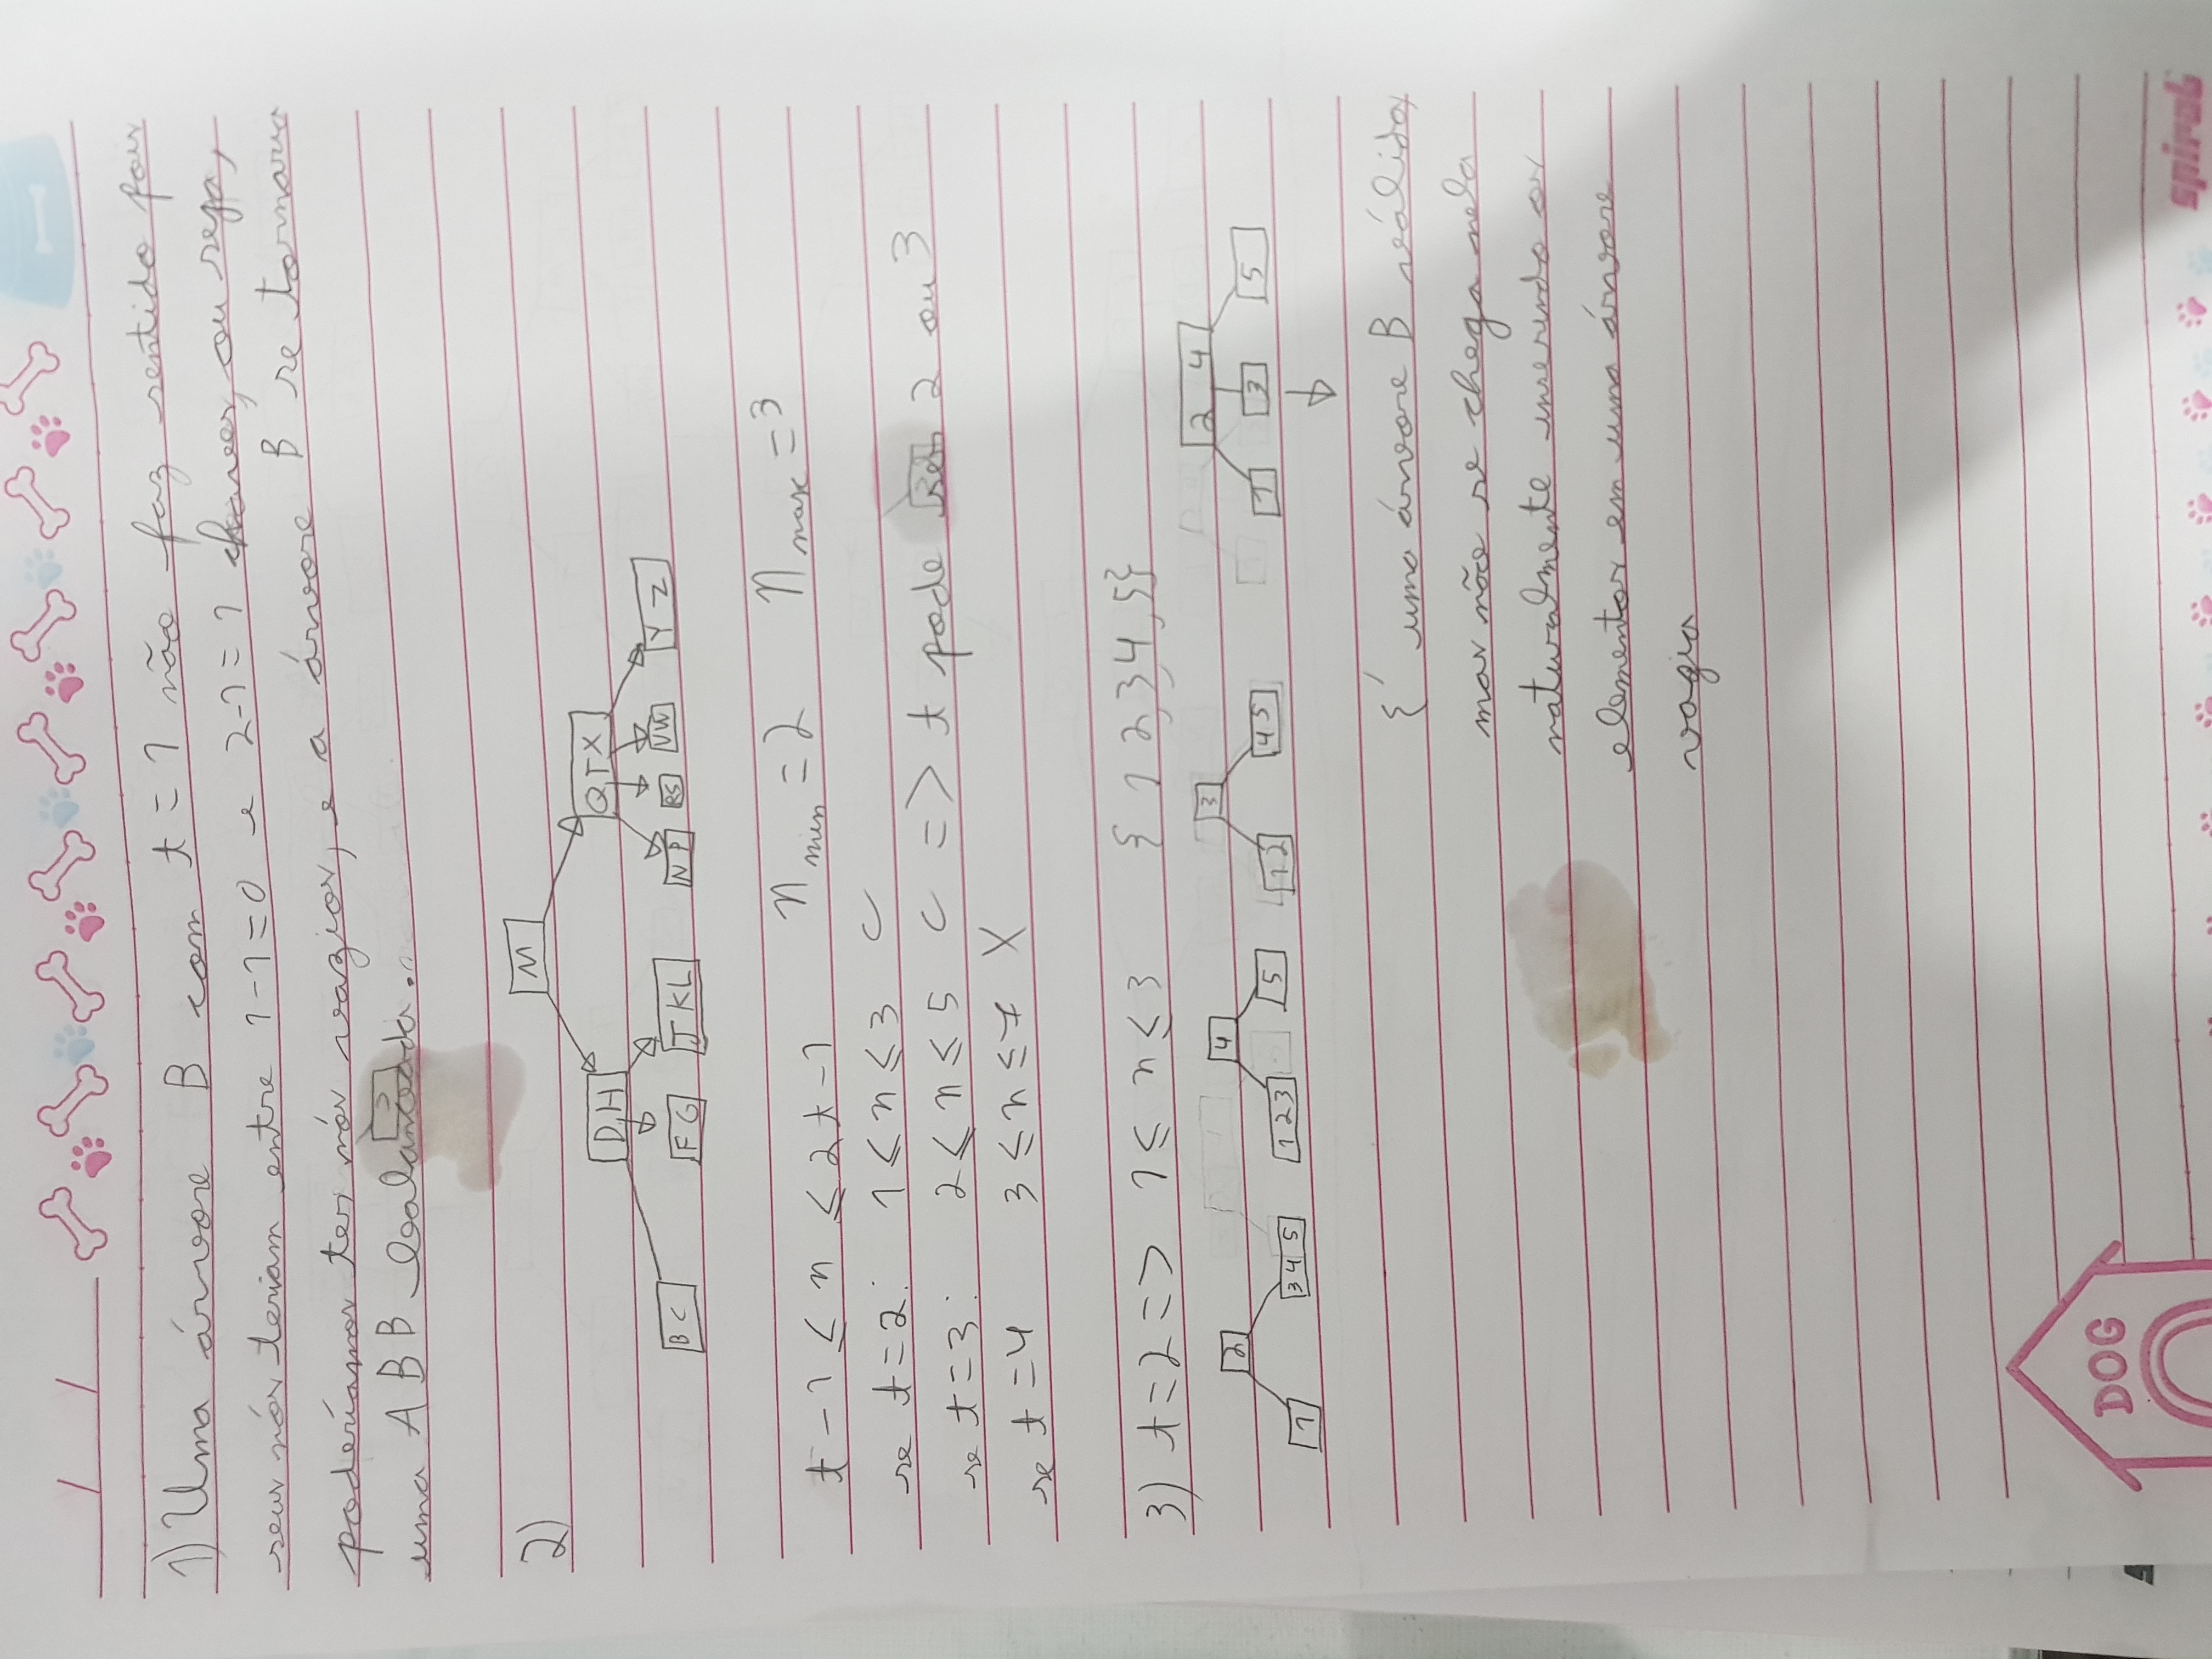 / /
1) Uma árvore B com t = 1 não faz sentido pois
seus nós teriam entre 1-1=0 e 2-1=1 chaves, ou seja,
poderíamos ter nós vazios, e a árvore B se tornaria
uma ABB balanceada...
2)
M
D H
Q T X
B C
F G
J K L
N P
RS
VW
Y Z
t - 1 ≤ n ≤ 2t - 1
n min = 2
n max = 3
se t = 2: 1 ≤ n ≤ 3 C
se t = 3: 2 ≤ n ≤ 5 C => t pode ser 2 ou 3
se t = 4 3 ≤ n ≤ 7 X
3) t = 2 => 1 ≤ n ≤ 3 { 1 2, 3 4, 5}
2
4
3
2 4
1
3 4 5
1 2 3
5
1 2
4 5
1
3
5
É uma árvore B válida,
mas não se chega nela
naturalmente inserindo os
elementos em uma árvore
vazia
DOG
spiral